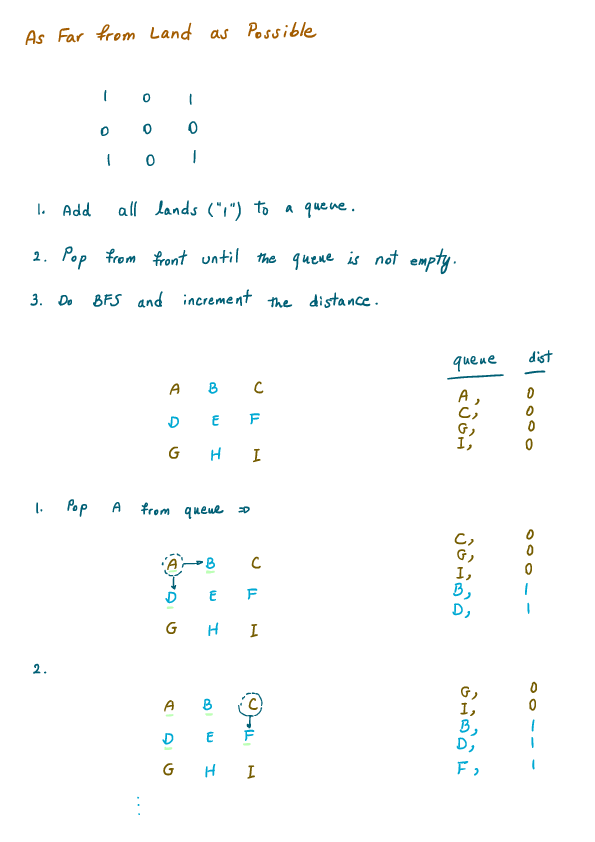 As Far from Land as Possible
1 0 1
0 0 0
1 0 1
1. Add all lands ("1") to a queue.
2. Pop from front until the queue is not empty.
3. Do BFS and increment the distance.
queue dist
A B C
D E F
G H I
A, 0
C, 0
G, 0
I, 0
1. Pop A from queue ⇒
A → B C
D E F
G H I
C, 0
G, 0
I, 0
B, 1
D, 1
2.
A B C
D E F
G H I
G, 0
I, 0
B, 1
D, 1
F, 1
⋮